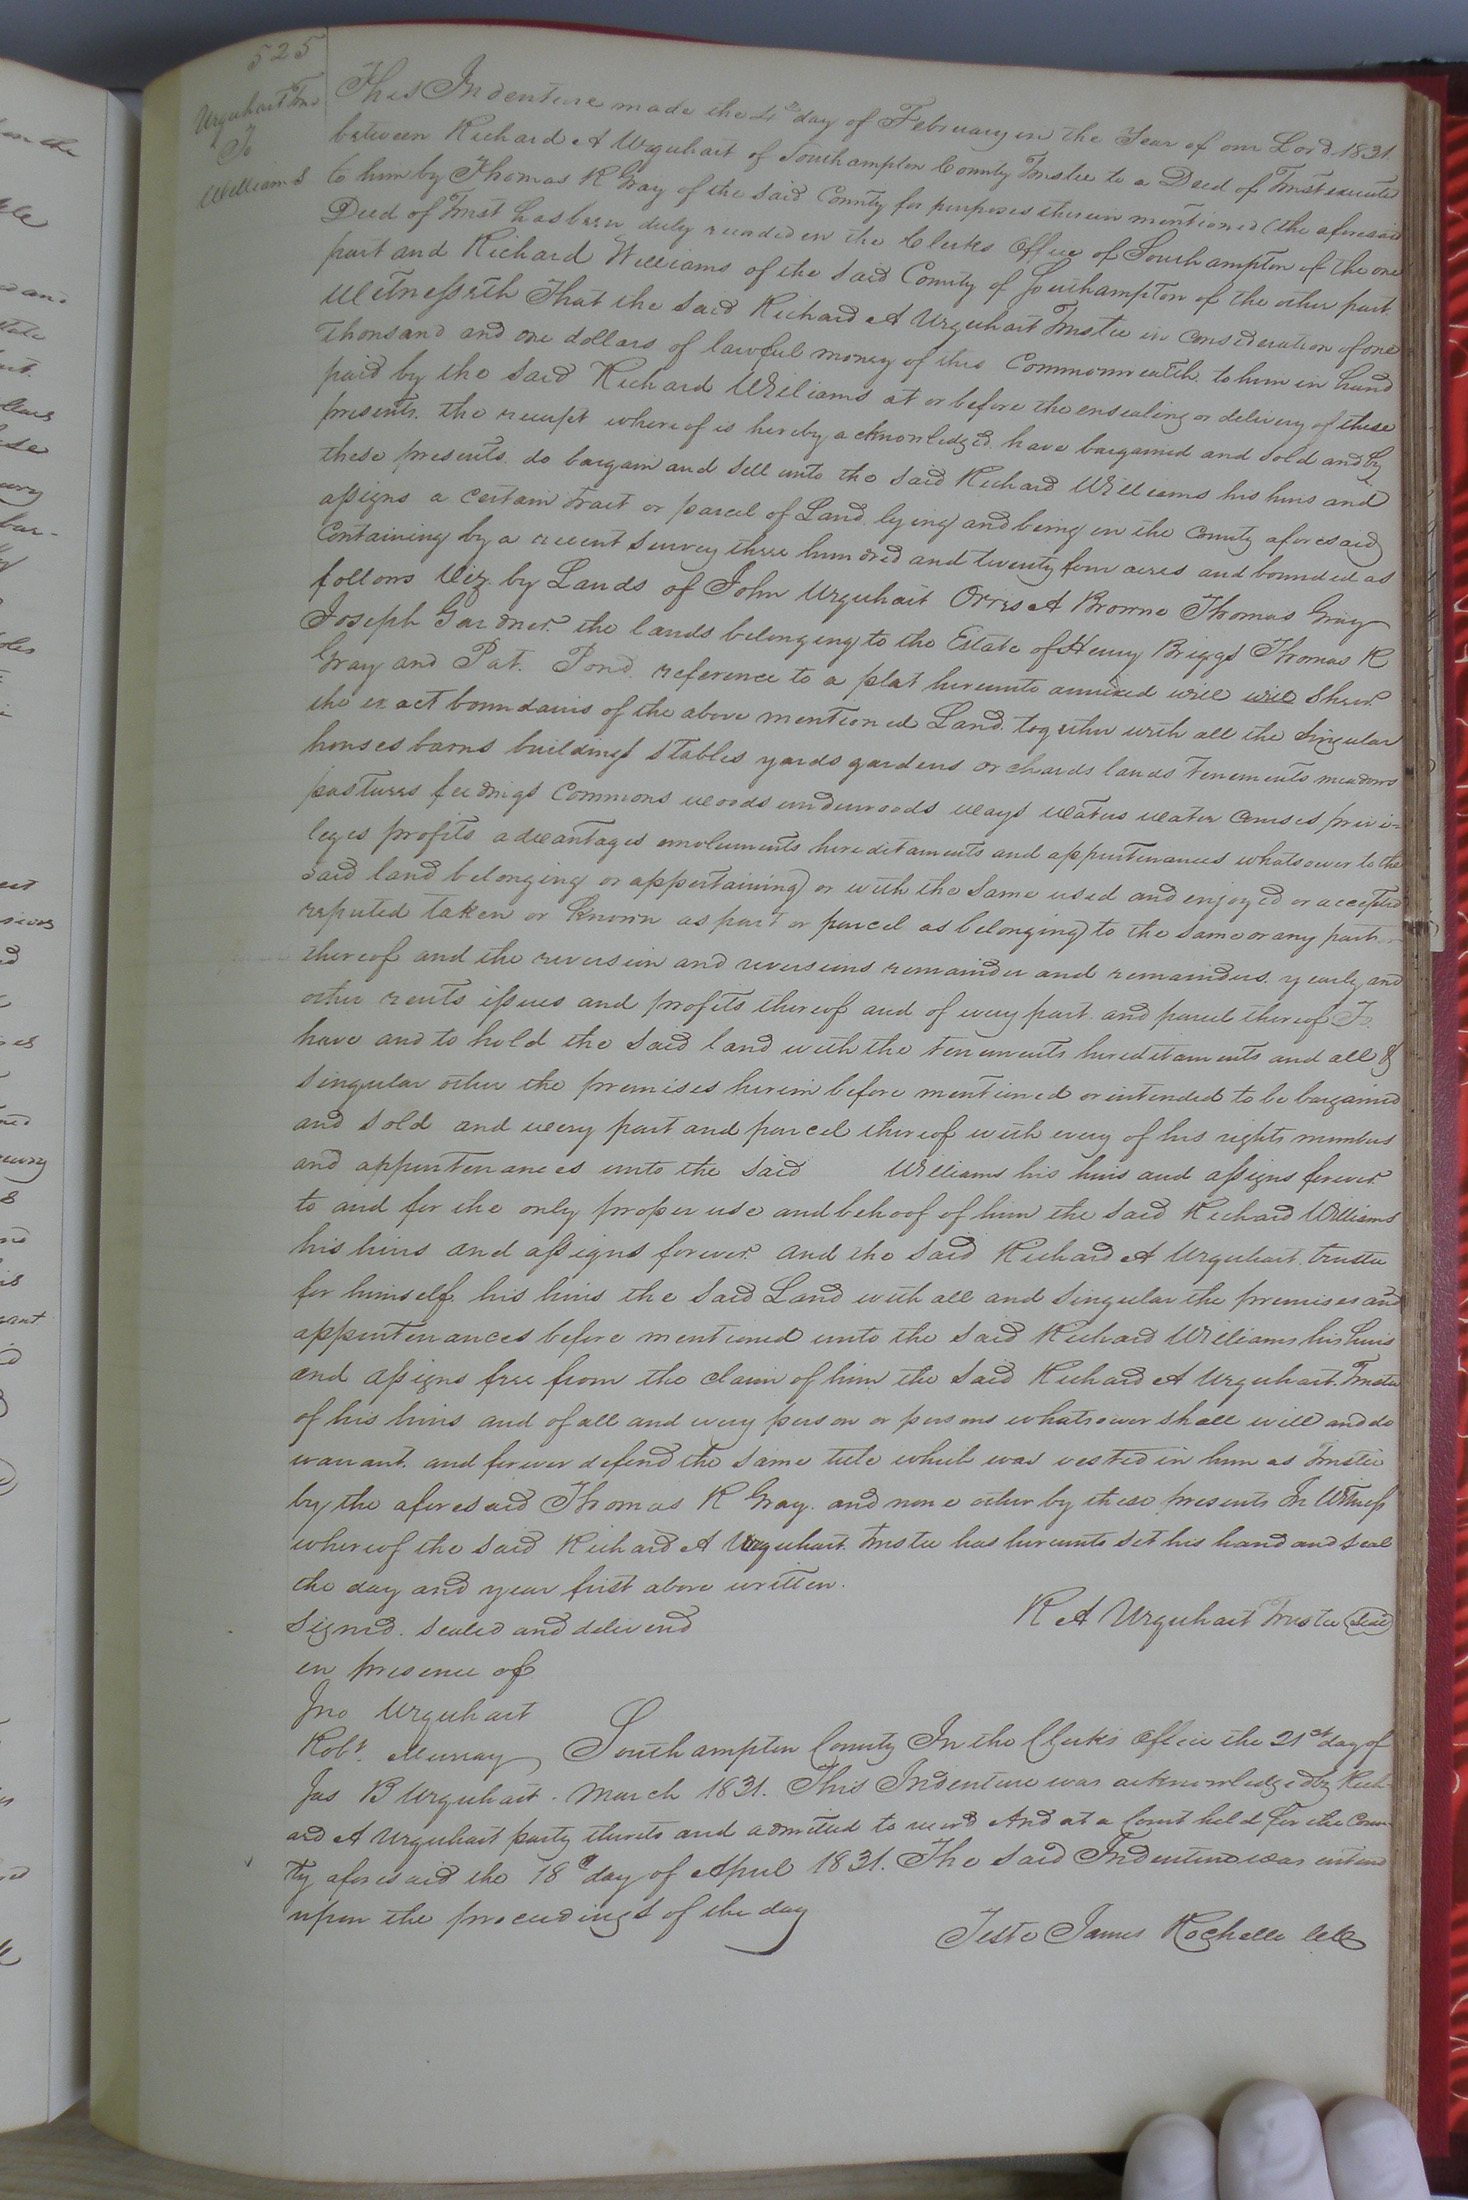 525
Urquhart Trus
To
Williams
This Indenture made the 4th day of February in the Year of our Lord 1831.
between Richard A Urquhart of Southampton County Trustee to a Deed of Trust executed
to him by Thomas R Gray of the said County for purposes therein mentioned (the aforesaid
Deed of Trust has been duly recorded in the Clerks Office of Southampton of the one
part and Richard Williams of the said County of Southampton of the other part.
Witnesseth That the said Richard A Urquhart Trustee in consideration of one
thousand and one dollars of lawful money of this Commonwealth to him in hand
paid by the said Richard Williams at or before the ensealing or delivery of these
presents. the receipt whereof is hereby acknowledged. have bargained and sold and by
these presents. do bargain and sell unto the said Richard Williams his heirs and
assigns a certain tract or parcel of Land. lying and being in the County aforesaid
Containing by a recent survey three hundred and twenty four acres and bounded as
follows Viz. by Lands of John Urquhart Orris A Browne Thomas Gray
Joseph Gardner. the lands belonging to the Estate of Henry Briggs Thomas R
Gray and Pat. Pond. reference to a plat hereunto annexed will will shew.
the exact boundaries of the above mentioned Land. together with all the singular
houses barns buildings stables yards gardens orchards lands tenements meadows
pastures feedings commons woods underwoods ways waters water courses privi-
leges profits advantages emoluments hereditaments and appurtenances whatsoever to the
said land belonging or appertaining or with the same used and enjoyed or accepted
reputed taken or known as part or parcel as belonging to the same or any part
thereof and the reversion and reversions remainder and remainders. yearly and
other rents issues and profits thereof and of every part. and parcel thereof To
have and to hold the said land with the tenements hereditaments and all &
singular other the premises herein before mentioned or intended to be bargained
and sold and every part and parcel thereof with every of his rights members
and appurtenances unto the said Williams his heirs and assigns forever.
to and for the only proper use and behoof of him the said Richard Williams
his heirs and assigns forever. and the said Richard A Urquhart. trustee
for himself his heirs the said Land with all and singular the premises and
appurtenances before mentioned unto the said Richard Williams his heirs
and assigns free from the claim of him the said Richard A Urquhart. Trustee
of his heirs and of all and every person or persons whatsoever shall will and do
warrant. and forever defend the same title which was vested in him as trustee
by the aforesaid Thomas R Gray. and none other by these presents In Witness
whereof the said Richard A Urquhart. trustee has hereunto set his hand and seal
the day and year first above written.
R A Urquhart Trustee (seal)
Signed. sealed and deliverd
in presence of
Jno Urquhart
Robt. Murray
Jas B Urquhart.
Southampton County In the Clerks Office the 21st day of
March 1831. This Indenture was acknowledged by Rich-
ard A Urquhart party thereto and admitted to record And at a Court held for the Coun
ty aforesaid the 18th day of April 1831. The said Indenture was entered
upon the proceedings of the day
Teste James Rochelle Clk